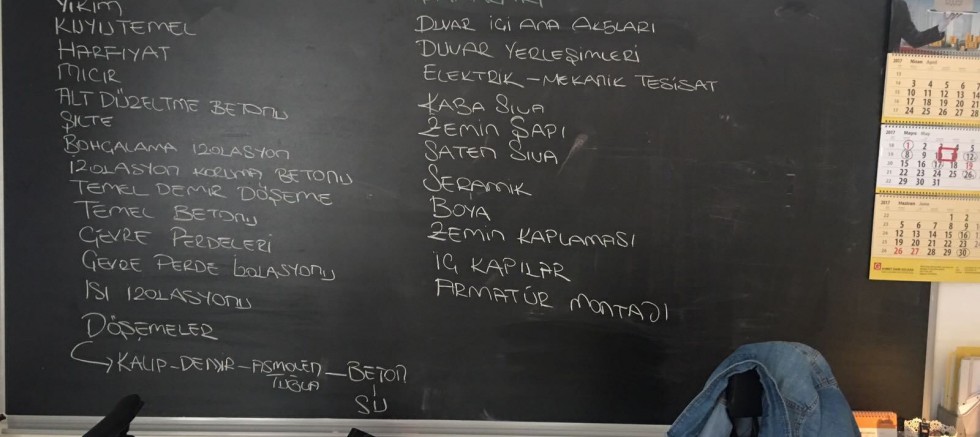 YIKIM
KUYU TEMEL
HARFİYAT
MICIR
ALT DÜZELTME BETONU
ŞİLTE
BOHÇALAMA İZOLASYON
İZOLASYON KORUMA BETONU
TEMEL DEMİR DÖŞEME
TEMEL BETONU
ÇEVRE PERDELERİ
ÇEVRE PERDE İZOLASYONU
ISI İZOLASYONU
DÖŞEMELER
KALIP-DEMİR-ASMOLEN TUĞLA-BETON
SU
DUVAR İÇİ ANA AKSLARI
DUVAR YERLEŞİMLERİ
ELEKTRİK-MEKANİK TESİSAT
KABA SIVA
ZEMİN ŞAPI
SATEN SIVA
SERAMİK
BOYA
ZEMİN KAPLAMASI
İÇ KAPILAR
ARMATÜR MONTAJI
2017 Nisan April
3 4 5 6 7
10 11 12 13 14
17 18 19 20 21
24 25 26 27 28
2017 Mayıs May
1 2 4 5
8 9 12
15 16 17 18 19
22 23 24 25 26
29 30 31
2017 Haziran June
1 2
5 6 7 8 9
12 13 14 15 16
19 20 21 22 23
26 27 28 29 30